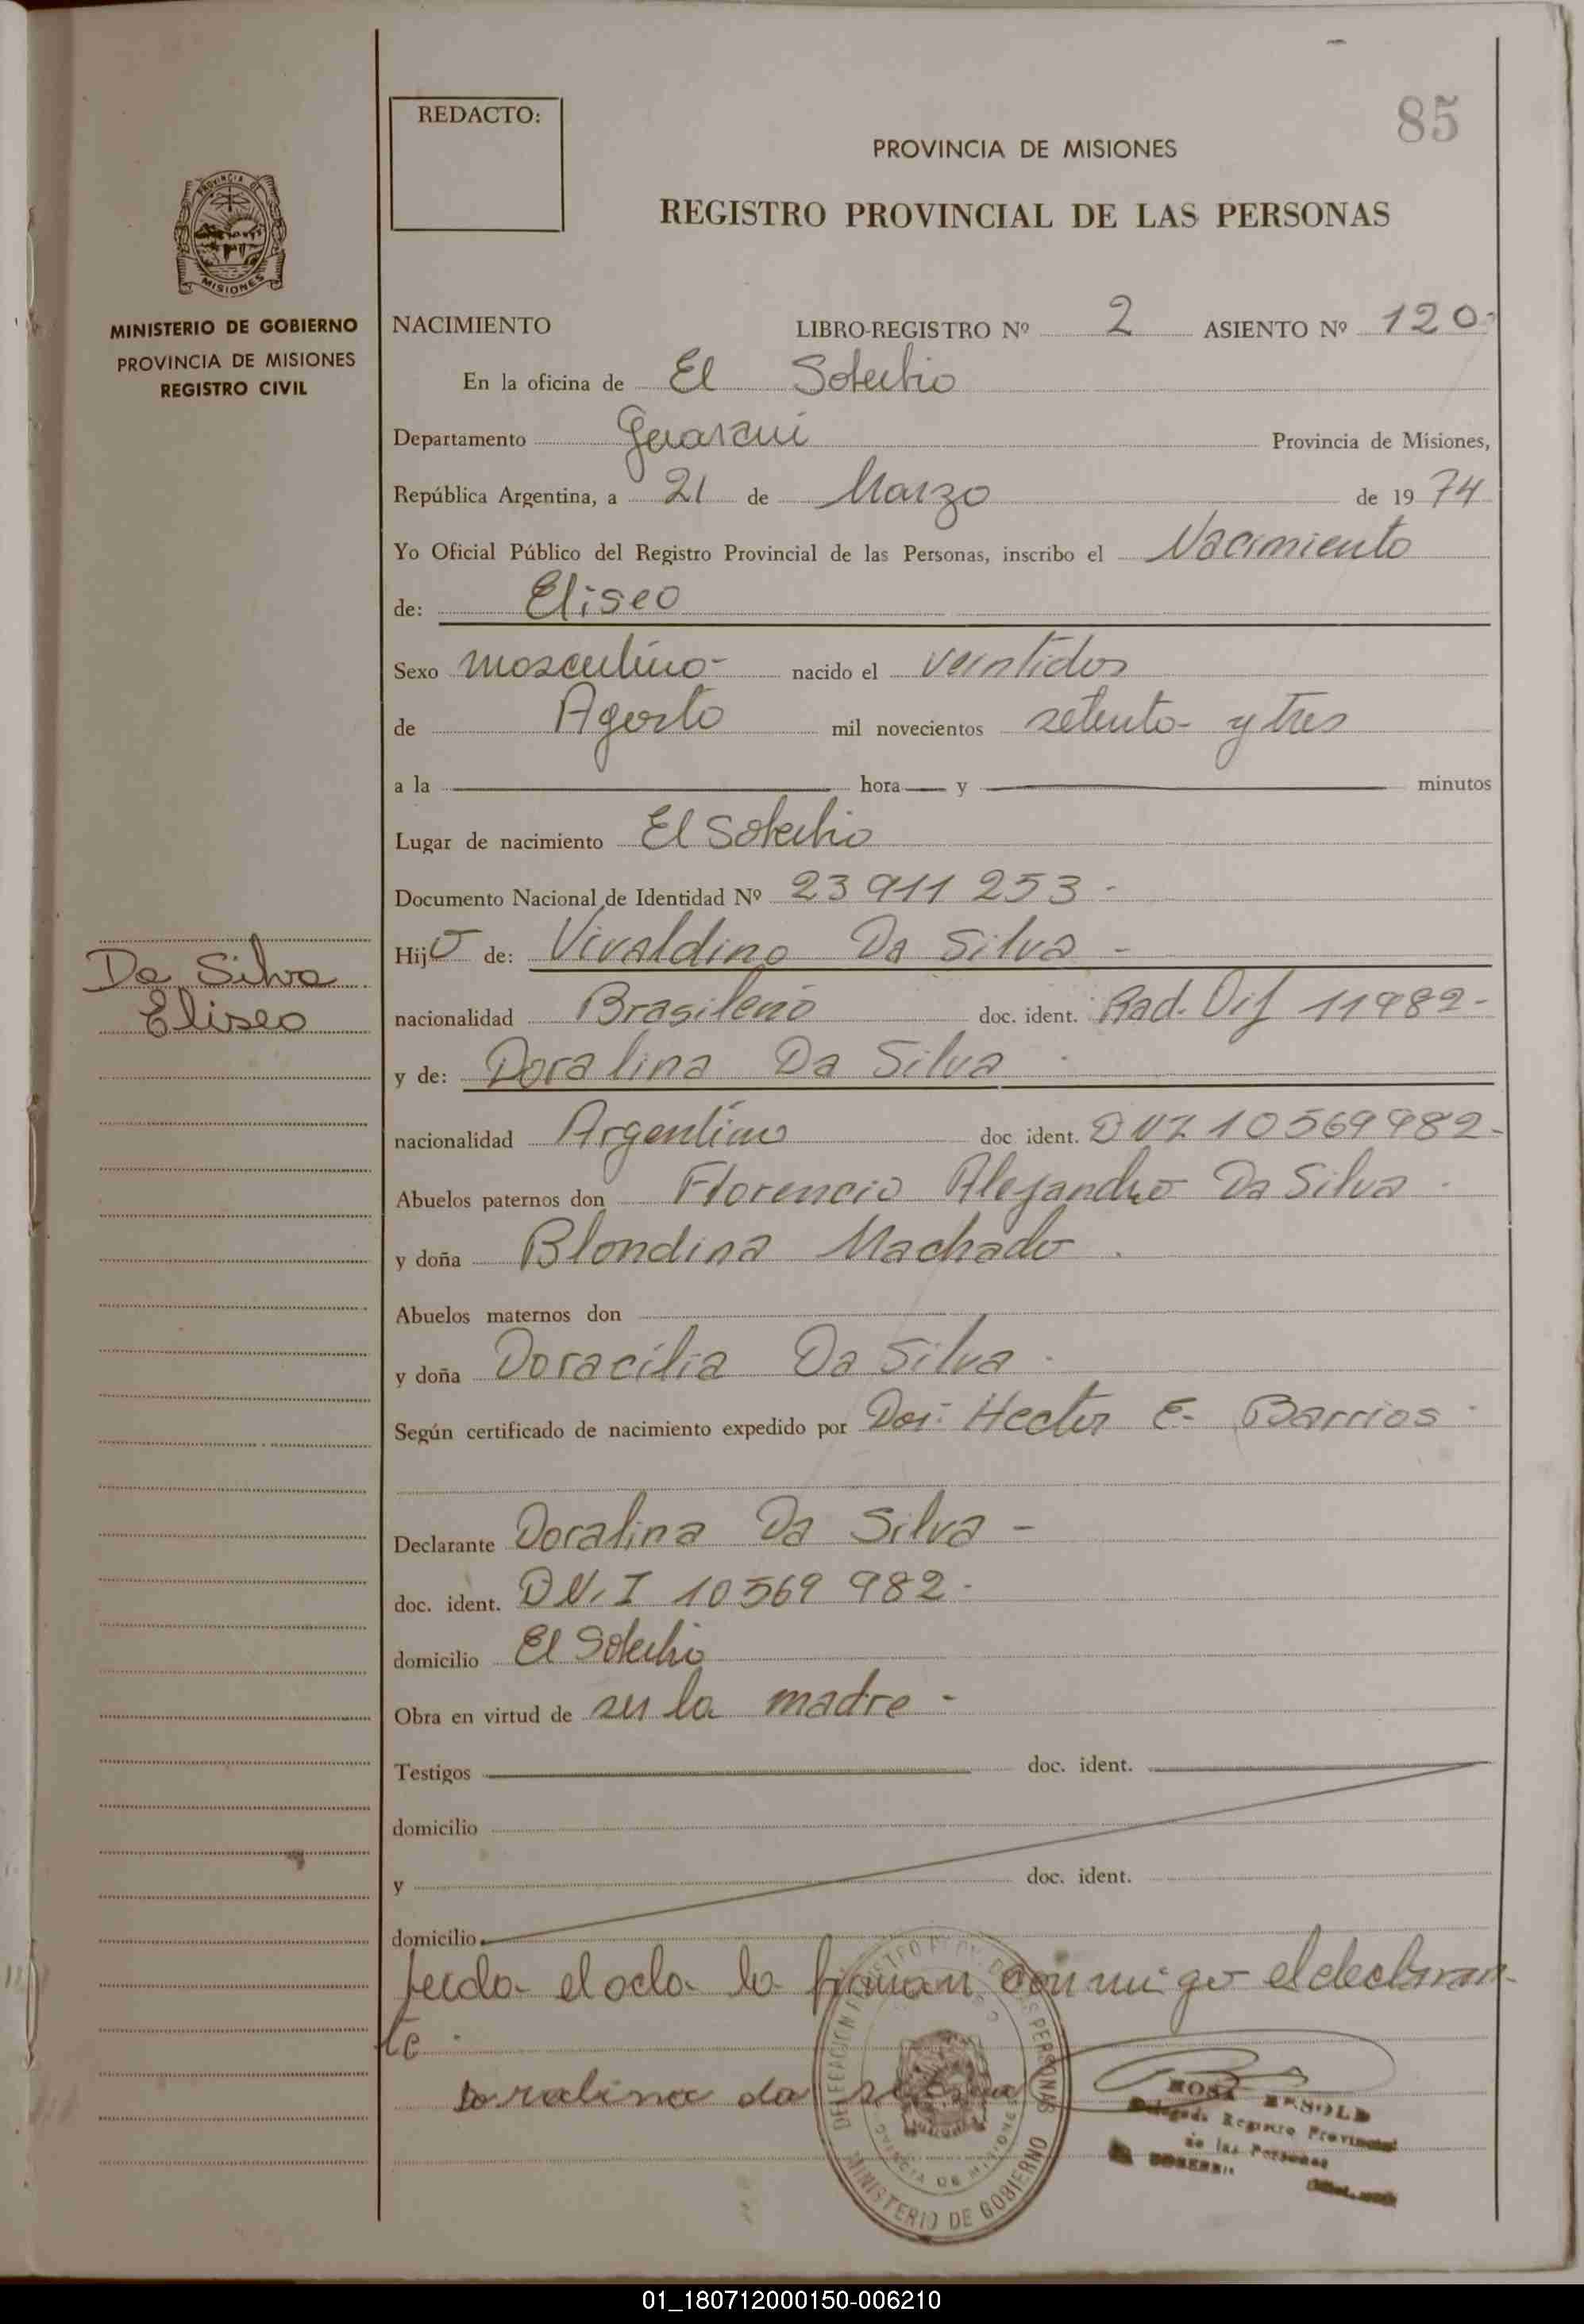 85
REDACTO:
PROVINCIA DE MISIONES
REGISTRO PROVINCIAL DE LAS PERSONAS
PROVINCIA DE
MISIONES
MINISTERIO DE GOBIERNO
PROVINCIA DE MISIONES
REGISTRO CIVIL
NACIMIENTO LIBRO-REGISTRO Nº 2 ASIENTO Nº 120-
En la oficina de El Soberbio
Departamento Guarani Provincia de Misiones,
República Argentina, a 21 de Marzo de 19 74
Yo Oficial Público del Registro Provincial de las Personas, inscribo el Nacimiento
de: Eliseo
Sexo masculino- nacido el veintidos
de Agosto mil novecientos setenta y tres
a la hora y minutos
Lugar de nacimiento El Soberbio
Documento Nacional de Identidad Nº 23 911 253 -
Hijo de: Vivaldino Da Silva -
Da Silva
Eliseo
nacionalidad Brasileño doc. ident. Rad. Dif 11982-
y de: Doralina Da Silva
nacionalidad Argentina doc ident. DNI 10569982-
Abuelos paternos don Florencio Alejandro Da Silva -
y doña Blondina Machado .
Abuelos maternos don
y doña Doracilia Da Silva -
Según certificado de nacimiento expedido por Hector E. Barrios -
Declarante Doralina Da Silva -
doc. ident. DN.I 10569 982-
domicilio El Soberbio
Obra en virtud de ser la madre -
Testigos doc. ident.
domicilio
y doc. ident.
domicilio
Leida el acta la firman conmigo el declaran-
te
doralina da silva
DELEGACION REGISTRO PROV. DE LAS PERSONAS
PROVINCIA DE MISIONES
MINISTERIO DE GOBIERNO
ROSA
Delegada Registro Provincial
de las Personas
01_180712000150-006210